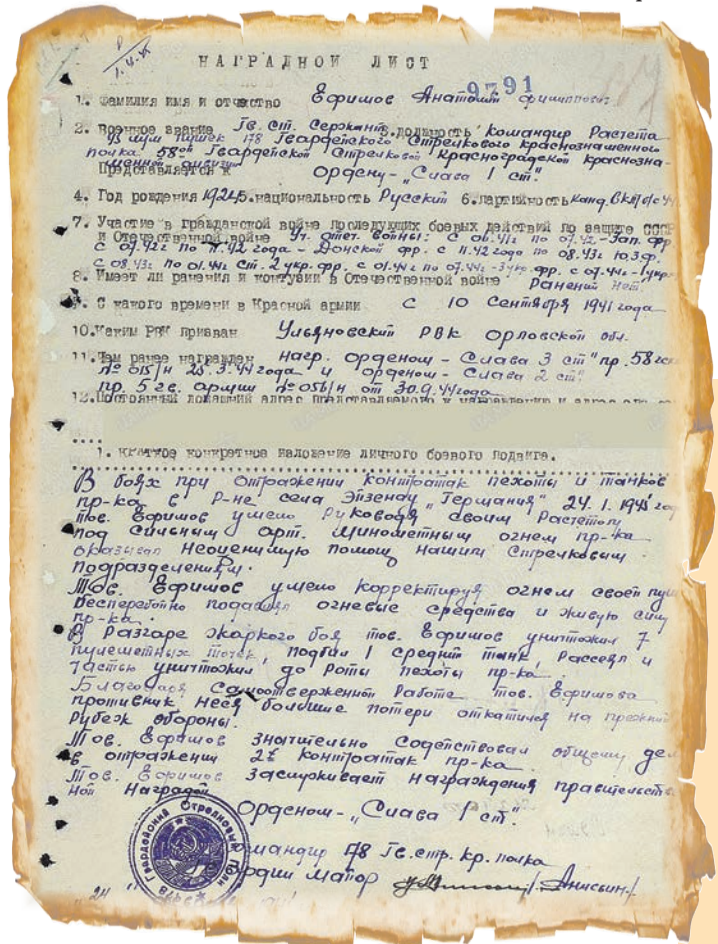 1.4.45
НАГРАДНОЙ ЛИСТ
9791
1. Фамилия имя и отчество Ефимов Анатолий Филиппович
2. Военное звание Гв. Ст. Сержант 3. Должность Командир Расчета
пушек 178 Гвардейского Стрелкового краснознаменного
полка 58-й Гвардейской Стрелковой Красноградской краснозна-
менной дивизии
Представляется к Ордену - "Слава 1 ст."
4. Год рождения 1924 5. национальность Русский 6. партийность Канд. ВКП/б/ с 44
7. Участие в гражданской войне последующих боевых действий по защите СССР
и Отечественной войне Уч. отеч. войны: с 06.42г по 07.42 - Зап. фр
с 07.42г по 11.42 года - Донской фр. с 11.42 года по 08.43г Ю.З.ф.
с 08.43г по 01.44г Ст. 2 укр. фр. с 01.44г по 07.44г - 3 укр. фр. с 07.44 - 1 укр
8. Имеет ли ранения и контузии в Отечественной войне Ранений нет
9. С какого времени в Красной армии с 10 сентября 1941 года
10. Каким РВК призван Ульяновский РВК Орловской обл.
11. Чем ранее награжден Нагр. орденом - Слава 3 ст" пр. 58 гсд
№ 015/н 25.3.44 года и орденом - Слава 2 ст."
пр. 5 гв. армии № 056/н от 30.9.44 года
12. Постоянный домашний адрес представляемого к награждению и адрес его
1. Краткое конкретное изложение личного боевого подвига.
В боях при отражении контратак пехоты и танков
пр-ка в р-не села Эйзенау "Германия" 24.1.1945 го
тов. Ефимов умело руководя своим Расчетом
под сильным арт. минометным огнем пр-ка
оказывал неоценимую помощь нашим Стрелковым
подразделениям.
Тов. Ефимов умело корректируя огнем своей пу
бесперебойно подавлял огневые средства и живую силу
пр-ка.
В разгаре жаркого боя тов. Ефимов уничтожил 7
пулеметных точек, подбил 1 средний танк, Рассеял и
частью уничтожил до Роты пехоты пр-ка.
Благодаря Самоотверженной Работе тов. Ефимова
противник, неся большие потери откатился на прежний
рубеж обороны.
Тов. Ефимов значительно содействовал общему де
в отражении 2х контратак пр-ка.
Тов. Ефимов заслуживает награждения правительств
ной Наградой
Орденом - "Слава 1 ст".
Командир 178 Гв. стр. Кр. полка
гвардии майор /Анисьин/.
178 Гвардейский Стрелковый Полк
"24"